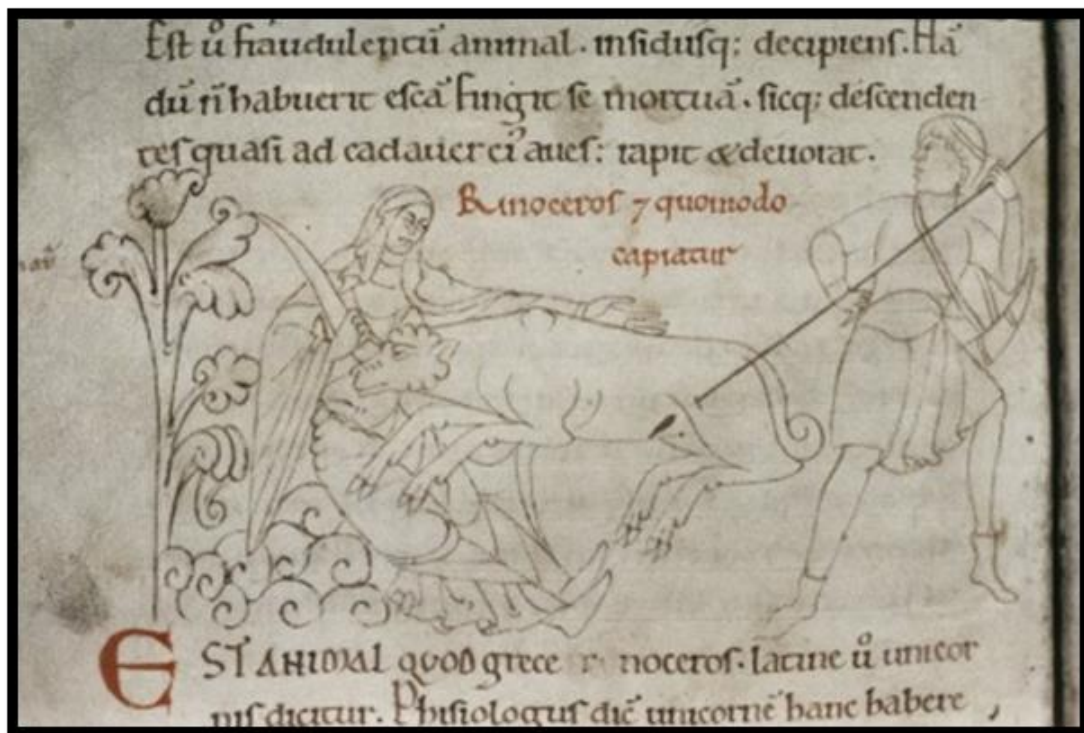 Est ů fraudulentū animal. insidiisq; decipiens. Hā
dū ñ habuerit escā fingit se mortuā. sicq; descenden
tes quasi ad cadauer ei' aues: rapit & deuorat.
Rinoceros 7 quomodo
capiatur
EST ANIMAL QUOD grece r noceros. latine ů unicor
nis dicitur. Phisiologus dic̄ unicornē hanc habere